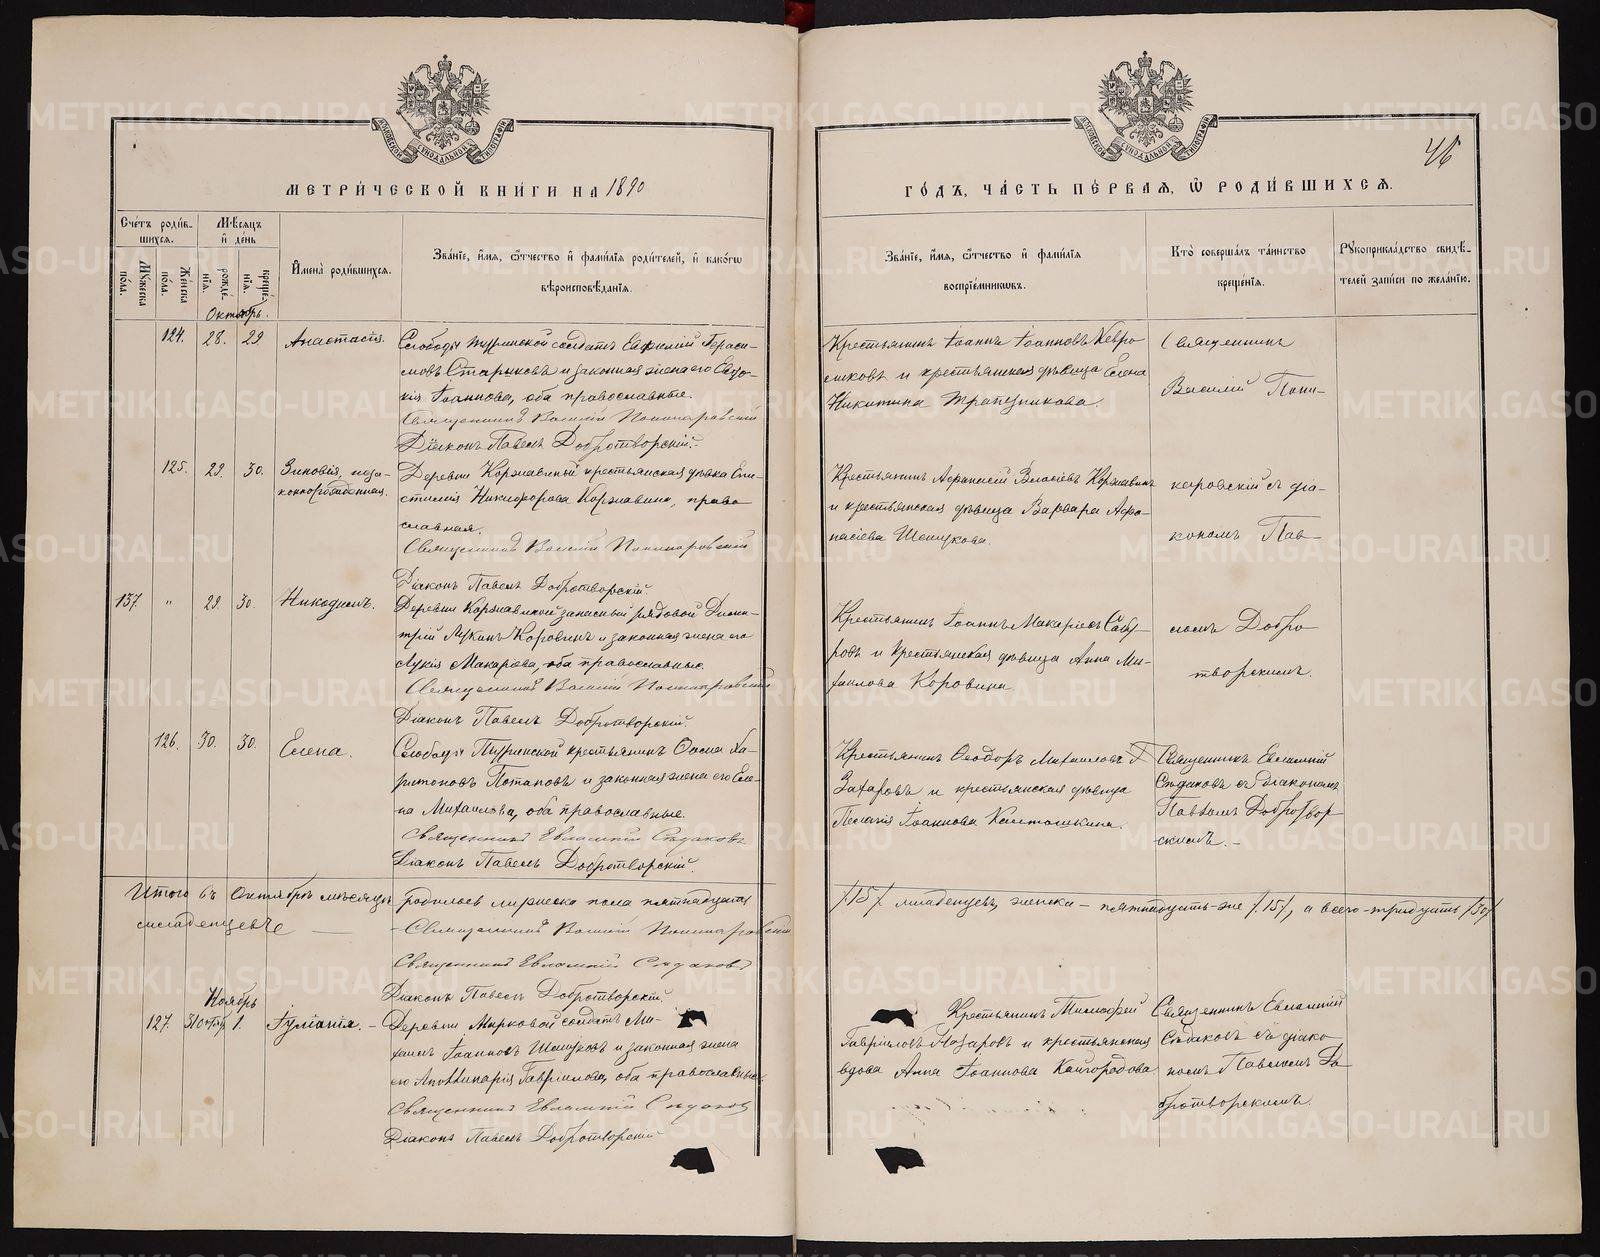 МЕТРИ́ЧЕСКОЙ КНИ́ГИ НА 1890
ГО́ДЪ, ЧА́СТЬ ПЕ́РВАЯ, Ѡ РОДИ́ВШИХСЯ.
46
Сче́тъ роди́в-
шихся.
Мѣ́сяцъ
и де́нь
Мꙋжеска
по́ла.
Же́нска
по́ла.
рожде́-
нїя.
креще́-
нїя.
Имена̀ роди́вшихся.
Зва́нїе, и҆́мя, ѻ҆́тчество и҆ фами́лїя роди́телей, и҆ како́гѡ
вѣроисповѣ́данїя.
Зва́нїе, и҆́мя, ѻ҆́тчество и҆ фами́лїя
воспрїе́мникѡвъ.
Кто̀ соверша́лъ та́инство
креще́нїя.
Рꙋкоприкла́дство свидѣ́-
телей за́писи по жела́нїю.
Октябрь.
124. 28. 29 Анастасія.
Слободы Туринской солдатъ Евфимій Гераси-
мовъ Старковъ и законная жена его Евдо-
кія Іоаннова, оба православные.
Священникъ Василій Пономаревскій
Діаконъ Павелъ Добротворскій.
Крестьянинъ Іоаннъ Іоанновъ
и крестьянская дѣвица Елена
Никитина Трапезникова.
Священникъ
Василій Поно-
125. 29. 30. Зиновія, неза-
коннорожденная.
Деревни Коржавиной крестьянская дѣвка Епи-
стимія Никифорова Коржавина, право
славная.
Священникъ Василій Пономаревскій
Діаконъ Павелъ Добротворскій.
Крестьянинъ Афанасій Власіевъ Коржавинъ
и крестьянская дѣвица Варвара Афа-
насіева Шешукова.
маревскій съ діа-
кономъ Пав-
137. " 29. 30. Никодимъ.
Деревни Коржавиной запасный рядовой Дими-
трій Лукинъ Коровинъ и законная жена его
Лукія Макаріева, оба православные.
Священникъ Василій Пономаревскій
Діаконъ Павелъ Добротворскій.
Крестьянинъ Іоаннъ Макаріевъ Сабу-
ровъ и крестьянская дѣвица Анна Ми-
хаилова Коровина
ломъ Добро
творскимъ.
126. 30. 30. Елена.
Слободы Туринской крестьянинъ Ѳома Ха-
ритоновъ Потаповъ и законная жена его Еле-
на Михаилова, оба православные.
Священникъ Евлампій Сѣдаковъ
Діаконъ Павелъ Добротворскій.
Крестьянинъ Ѳеодоръ Михаиловъ
Захаровъ и крестьянская дѣвица
Пелагія Іоаннова Калташкина.
Священникъ Евлампій
Сѣдаковъ съ діакономъ
Павломъ Добротвор
скимъ. -
Итого въ Октябрѣ мѣсяцѣ родилось мужеска пола пятнадцать /15/ младенцевъ, женска - пятнадцать-же /15/, а всего-тридцать /30/
младенцевъ
Священникъ Василій Пономаревскій
Священникъ Евлампій Сѣдаковъ
Діаконъ Павелъ Добротворскій.
Ноябрь
127. 31 октяб 1. Іуліанія. -
Деревни Мирковой солдатъ Ми-
хаилъ Іоанновъ Шешуковъ и законная жена
его Аполлинарія Гавріилова, оба православные.
Священникъ Евлампій Сѣдаковъ
Діаконъ Павелъ Добротворскій
Крестьянинъ Тимофей
Гавріиловъ Назаровъ и крестьянская
вдова Анна Іоаннова Кайгородова
Священникъ Евлампій
Сѣдаковъ съ діако
номъ Павломъ До
бротворскимъ.